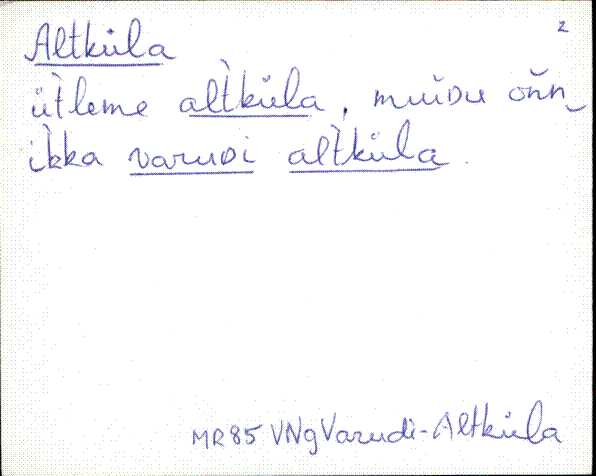 2
Altküla
üt̀leme alt̀küla, muiᴅu oǹn
ik̀ka varuᴅi alt̀küla.
MR85 VNg Varudi-Altküla